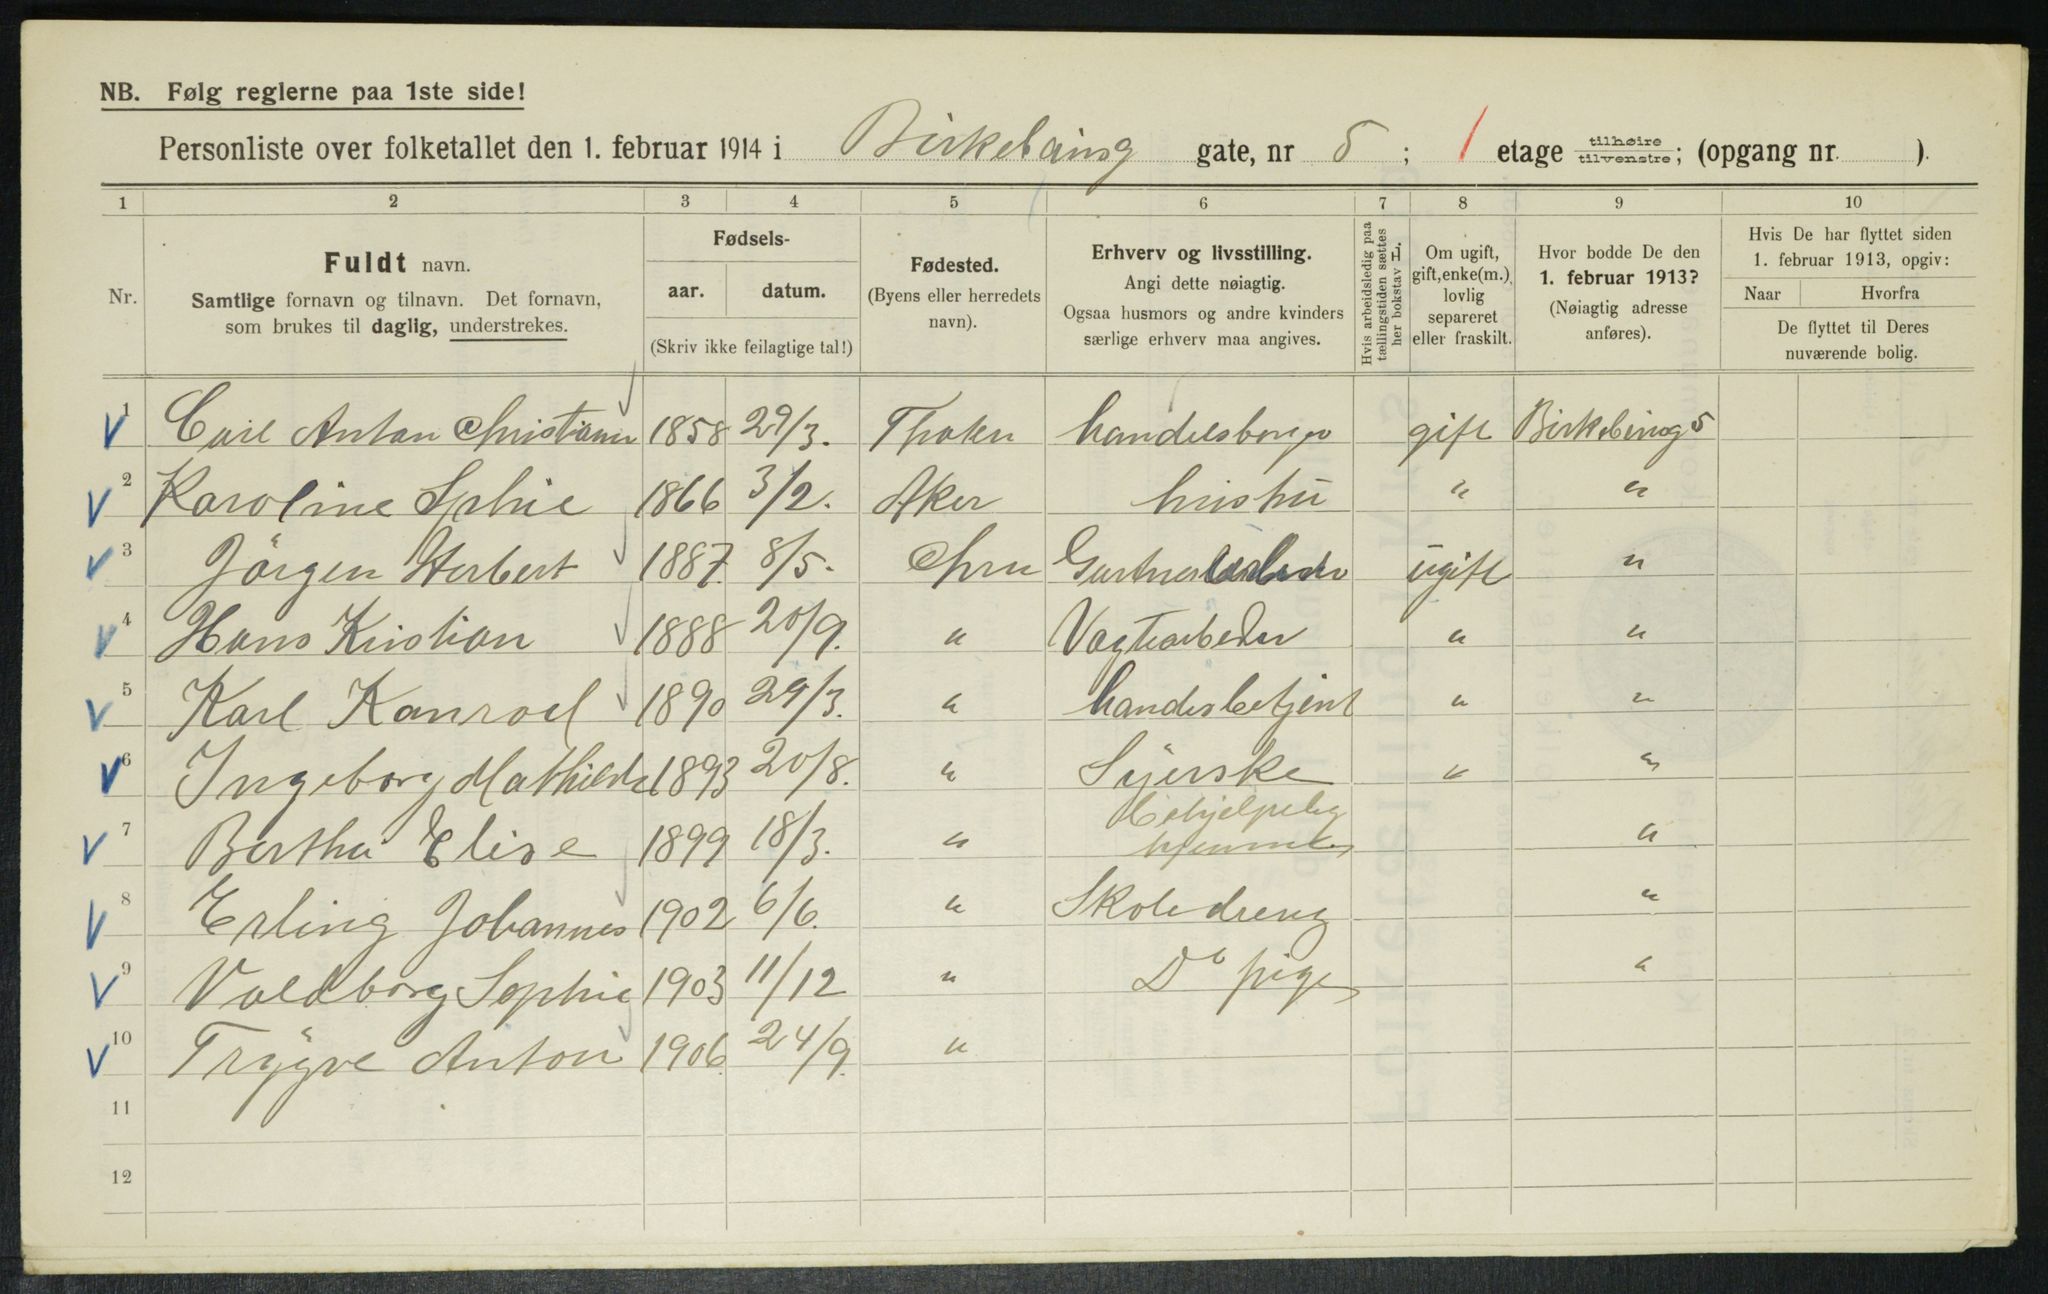 NB. Følg reglerne paa 1ste side!
Personliste over folketallet den 1. februar 1914 i Birkebeinsg gate, nr 5 ; 1 etage tilhøire tilvenstre; (opgang nr. ).
1 2 3 4 5 6 7 8 9 10
Nr.
Fuldt navn.
Samtlige fornavn og tilnavn. Det fornavn,
som brukes til daglig, understrekes.
Fødsels-
aar. datum.
(Skriv ikke feilagtige tal!)
Fødested.
(Byens eller herredets
navn).
Erhverv og livsstilling.
Angi dette nøiagtig.
Ogsaa husmors og andre kvinders
særlige erhverv maa angives.
Hvis arbeidsledig paa
tællingstiden sættes
her bokstav L.
Om ugift,
gift, enke(m.),
lovlig
separeret
eller fraskilt.
Hvor bodde De den
1. februar 1913?
(Nøiagtig adresse
anføres).
Hvis De har flyttet siden
1. februar 1913, opgiv:
Naar Hvorfra
De flyttet til Deres
nuværende bolig.
1 Carl Anton Christiann 1858 29/3. handelsborger gift Birkebinsg 5
2 Karoline Sphie 1866 3/2. Aker hustru " "
3 Jörgen Herbert 1887. 8/5. Chra ugift "
4 Hans Kristian 1888 20/9. " Vogtearbeder " "
5 Karl Konrod 1890 29/3. " handesbetjent " "
6 Ingeborg Mathilde 1893 20/8. " Syerske " "
7 Bertha Elise 1899 18/3. " behjelpelig hjemme "
8 Erling Johannes 1902 6/6. " Skoledreng "
9 Valdborg Sophie 1903 11/12 " Do pige "
10 Trygve Anton 1906 24/9. "
11
12